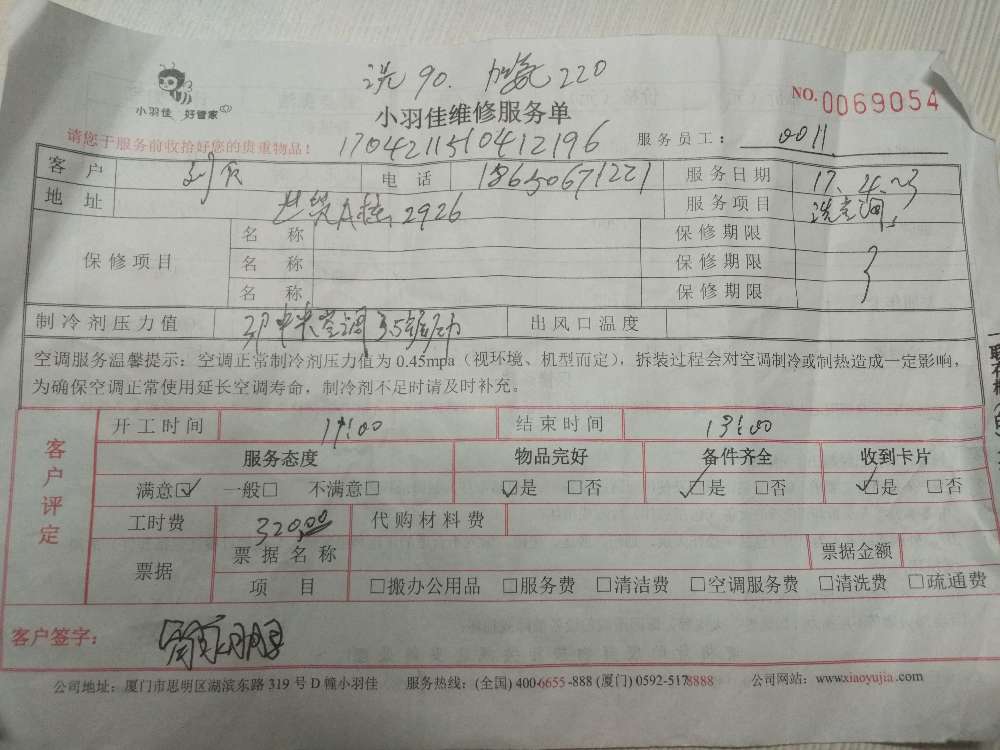 洗90. 加氨220
小羽佳 好管家
小羽佳维修服务单
NO.0069054
请您于服务前收拾好您的贵重物品!
17042115104 12196
服务员工: 0011
客户 电话 18650671221 服务日期 17.4.23
地址 世贸A栋 2926 服务项目 洗空调
保修项目 名称 保修期限
名称 保修期限
名称 保修期限
制冷剂压力值 出风口温度
空调服务温馨提示:空调正常制冷剂压力值为0.45mpa(视环境、机型而定),拆装过程会对空调制冷或制热造成一定影响,
为确保空调正常使用延长空调寿命,制冷剂不足时请及时补充。
客户评定
开工时间 11:00 结束时间 13:00
服务态度 物品完好 备件齐全 收到卡片
满意☑ 一般□ 不满意□ ☑是 □否 ☑是 □否 ☑是 □否
工时费 320.00 代购材料费
票据 票据名称 票据金额
项目 □搬办公用品 □服务费 □清洁费 □空调服务费 □清洗费 □疏通费
客户签字:
公司地址:厦门市思明区湖滨东路319号D幢小羽佳 服务热线:(全国)400-6655-888(厦门)0592-5178888 公司网站:www.xiaoyujia.com